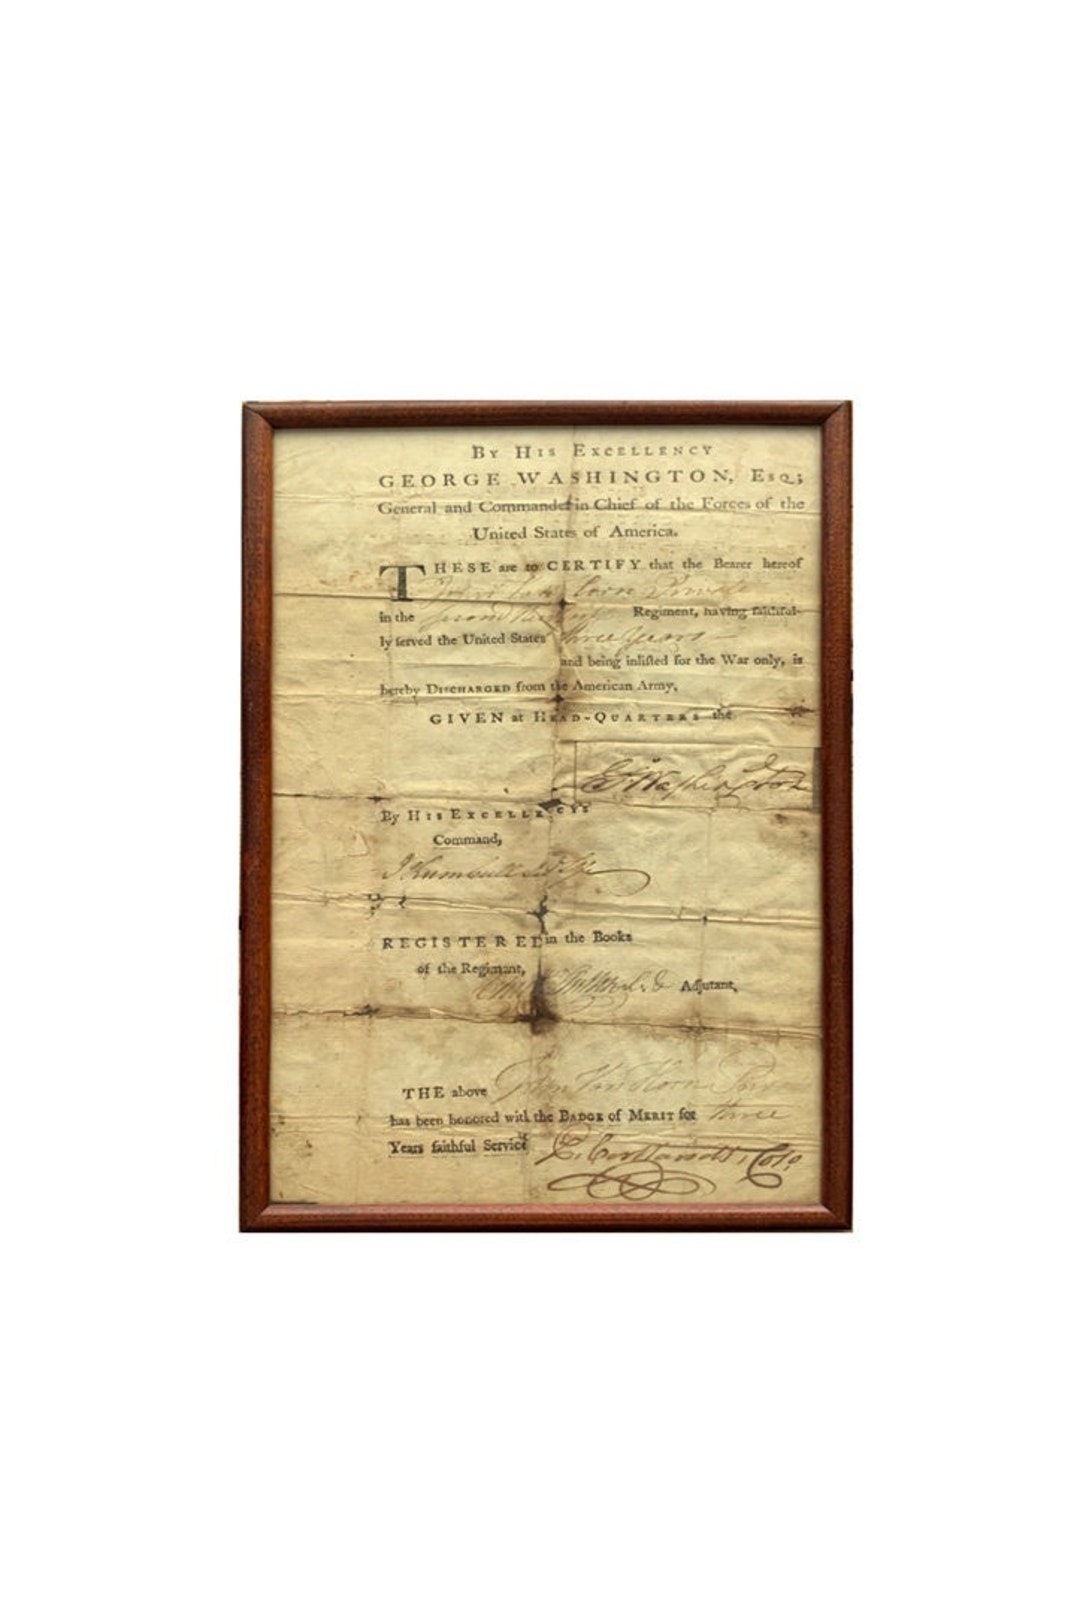 BY HIS EXCELLENCY
GEORGE WASHINGTON, ESQ;
General and Commander in Chief of the Forces of the
United States of America.
THESE are to CERTIFY that the Bearer hereof
John Van Horn Private
in the Second Regiment, having faithful-
ly served the United States three years
and being inlisted for the War only, is
hereby DISCHARGED from the American Army.
GIVEN at HEAD-QUARTERS the
G. Washington
By HIS EXCELLENCYS
Command,
J Trumbull
REGISTERED in the Books
of the Regimant,
Adjutant,
THE above John Van Horn Private
has been honored with the BADGE of MERIT for three
Years faithful Service
P. Cortlandt, Colo